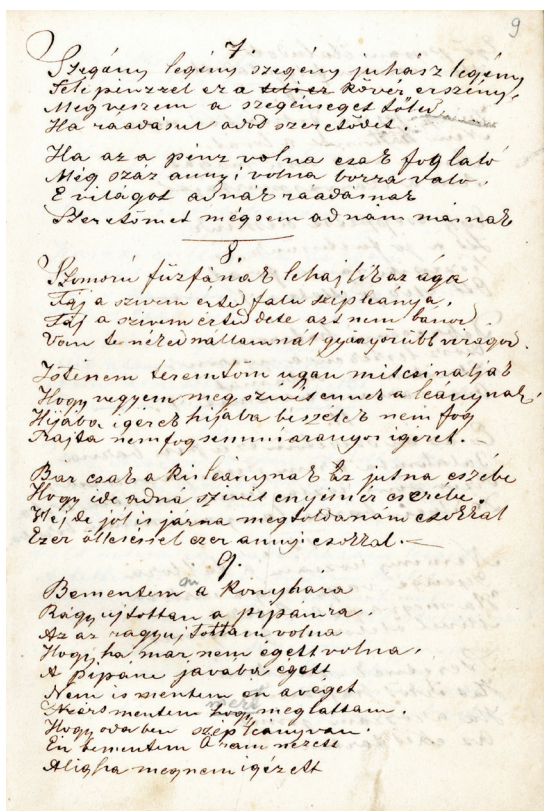 9
7.
Szegány legény szegény juhász legény
Teli pénzzel ez a kövér erszény,
Megveszem a szegénséget tőled
Ha ráádásul adod szeretődet.
Ha az a pénz volna csak foglaló
Még száz annyi volna hozza való.
E világot adnák ráádásnak
Szeretőmet mégsem adnám másnak
8.
Szomorú fűzfának lehajlik az ága
Fáj a szivem érted falu szép leánya,
Fáj a szivem érted de te azt nem bánod
Van te néked nállamnál gyönyörübb virágod.
Istenem teremtöm ugyan mit csináljak
Hogy vegyem meg szivét ennek a leánynak,
Hijába igérek hijába beszélek nem fog
Rajta nem fog semmi aranyos igéret.
Bár csak a kis leánynak az jutna eszébe
Hogy ide adna szivét enyimér cserébe.
Hej de jól is járna megtoldanám csókkal
Ezer öleléssel ezer annyi csókkal.
9.
Bementem a konyhára
Rágyujtottam a pipámra.
Az az rágyujtottam volna
Hogy ha már nem égett volna.
A pipám javába égett
Nem is mentem én avéget
Azért mentem mert meglattam.
Hogy oda ben szép leány van.
Én bementem Ő rám nézett
Aligha megnem igézett